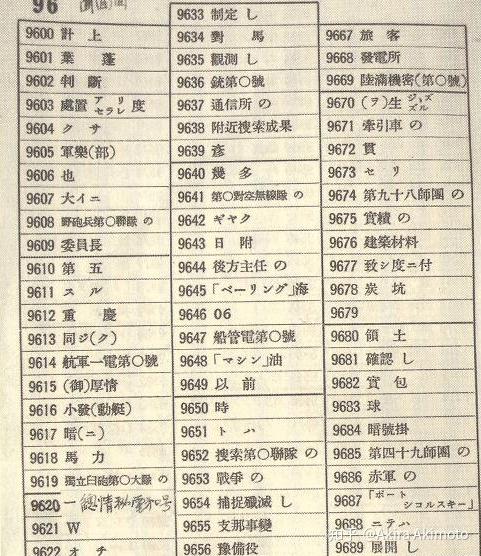 96
9600 計上
9601 葉蓬
9602 判斷
9603 處置アリ セラレ度
9604 クサ
9605 軍樂(部)
9606 也
9607 大イニ
9608 野砲兵第〇聯隊の
9609 委員長
9610 第五
9611 スル
9612 重慶
9613 同ジ(ク)
9614 航軍一電第〇號
9615 (御)厚情
9616 小發(動艇)
9617 暗(ニ)
9618 馬力
9619 獨立臼砲第〇大隊の
9620
9621 W
9622 オチ
9633 制定し
9634 對馬
9635 觀測し
9636 銃第〇號
9637 通信所の
9638 附近搜索成果
9639 彥
9640 幾多
9641 第〇對空無線隊の
9642 ギヤク
9643 日附
9644 後方主任の
9645 「ベーリング」海
9646 06
9647 船管電第〇號
9648 「マシン」油
9649 以前
9650 時
9651 トハ
9652 搜索第〇聯隊の
9653 戰爭の
9654 捕捉殲滅し
9655 支那事變
9656 豫備役
9667 旅客
9668 發電所
9669 陸滿機密(第〇號)
9670 (ヲ)生ジ ズル
9671 牽引車の
9672 貫
9673 セリ
9674 第九十八師團の
9675 實績の
9676 建築材料
9677 致シ度ニ付
9678 炭坑
9679
9680 領土
9681 確認し
9682 實包
9683 球
9684 暗號掛
9685 第四十九師團の
9686 赤軍の
9687 「ポートシコルスキー」
9688 ニテハ
9689 展開し
知乎 @Akira Akimoto